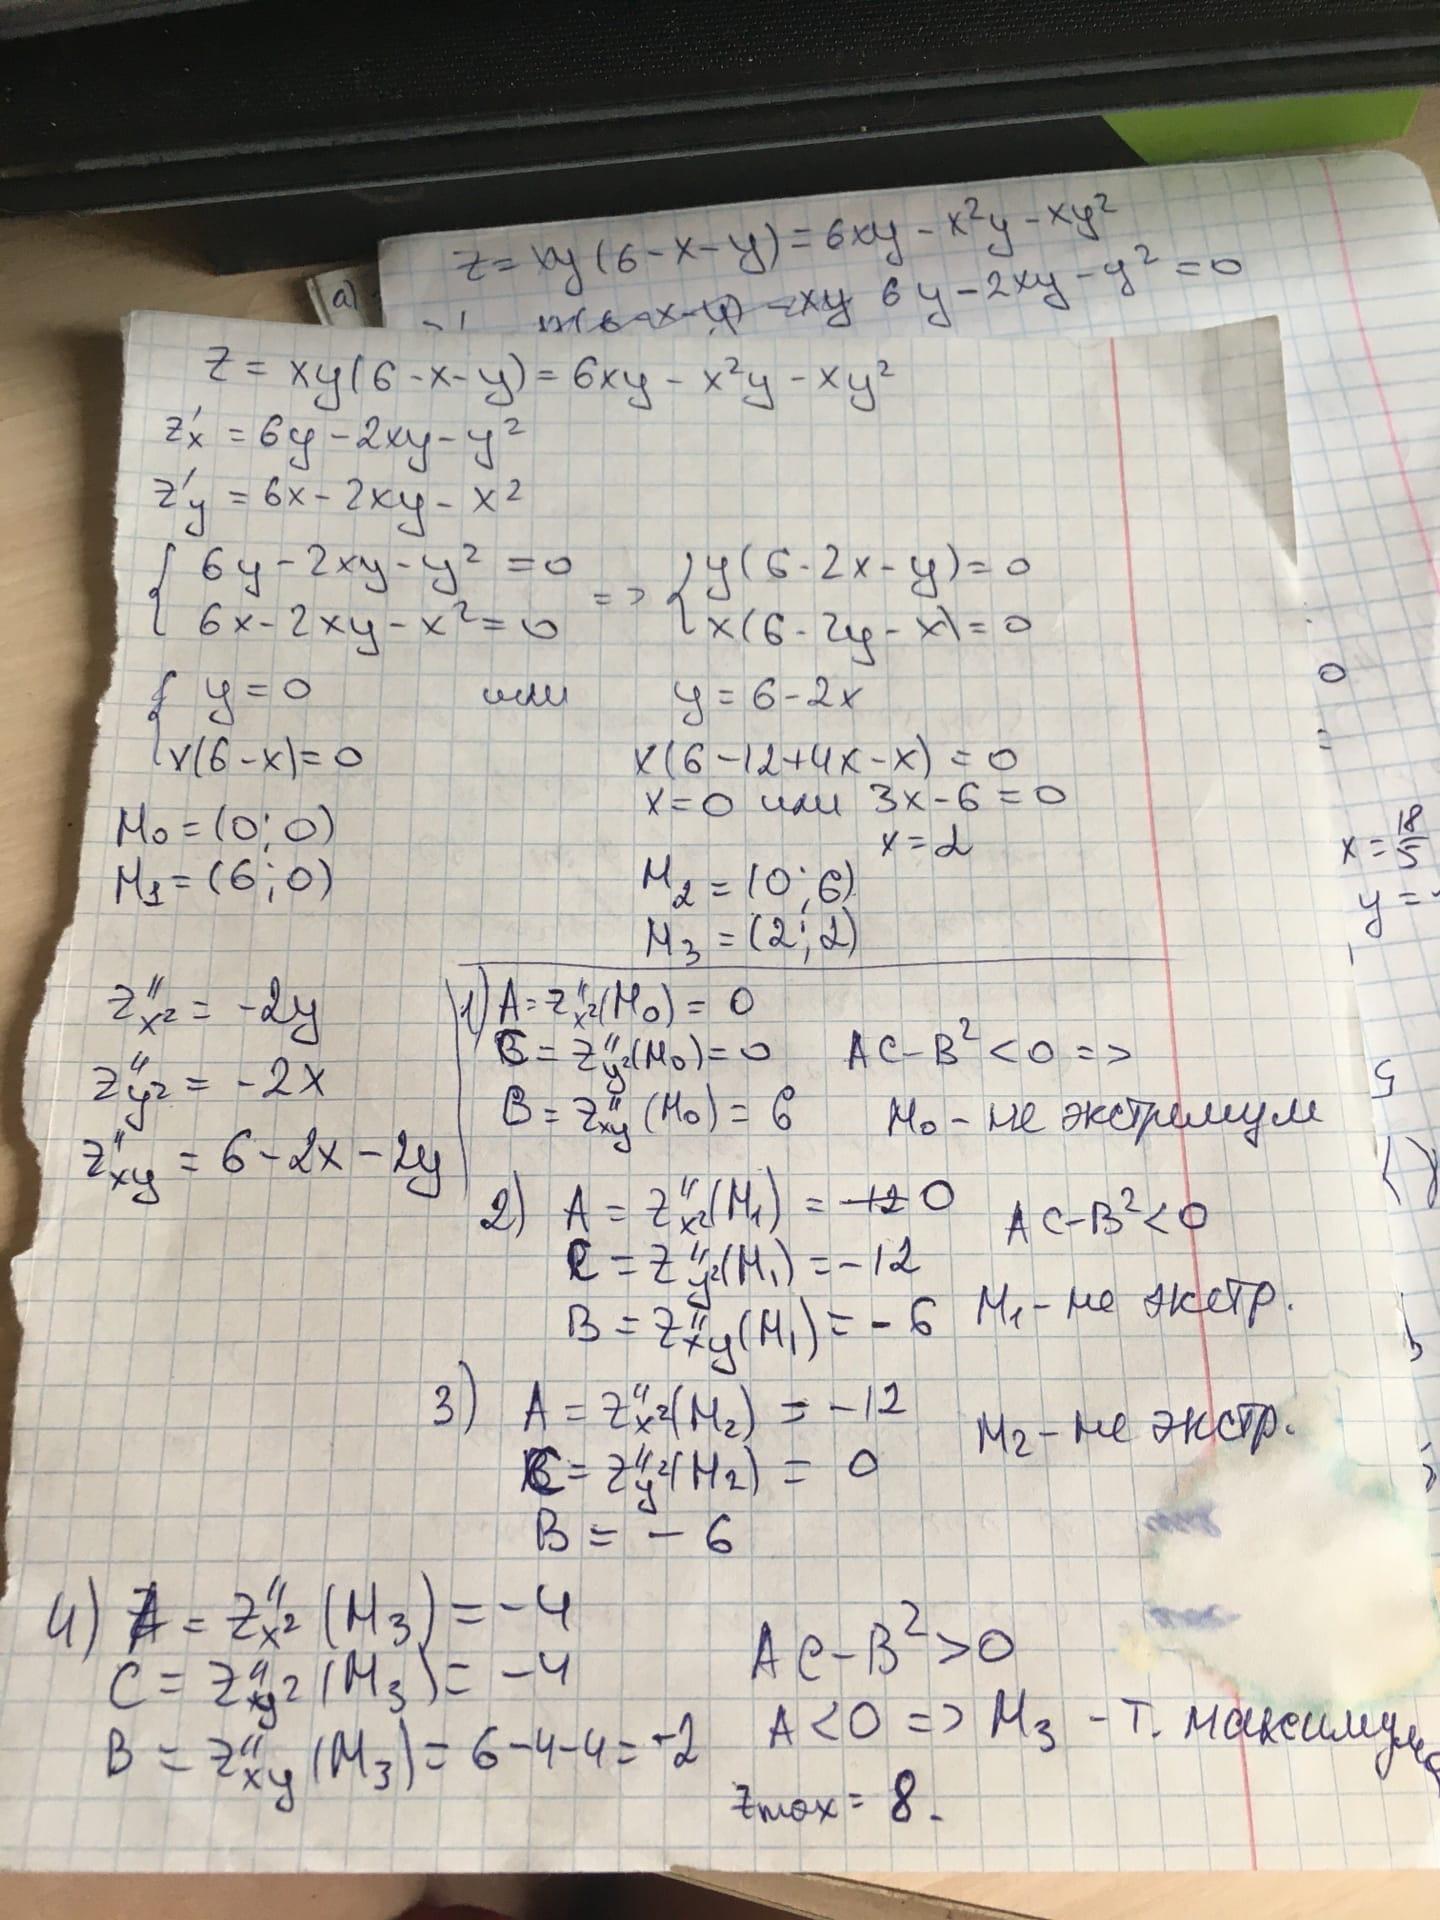 z = xy(6-x-y) = 6xy - x²y - xy²
a)
6y - 2xy - y² = 0
z = xy(6-x-y) = 6xy - x²y - xy²
z'x = 6y - 2xy - y²
z'y = 6x - 2xy - x²
{ 6y - 2xy - y² = 0 => { y(6-2x-y) = 0
{ 6x - 2xy - x² = 0 { x(6-2y-x) = 0
{ y = 0 или y = 6-2x
{ x(6-x) = 0 x(6-12+4x-x) = 0
x = 0 или 3x-6 = 0
x = 2
M0 = (0; 0)
M1 = (6; 0)
M2 = (0; 6)
M3 = (2; 2)
z''x² = -2y
z''y² = -2x
z''xy = 6-2x-2y
1) A = z''x²(M0) = 0
C = z''y²(M0) = 0 AC-B² < 0 =>
B = z''xy(M0) = 6 M0 - не экстремум
2) A = z''x²(M1) = 0 AC-B² < 0
C = z''y²(M1) = -12
B = z''xy(M1) = -6 M1 - не экстр.
3) A = z''x²(M2) = -12 M2 - не экстр.
C = z''y²(M2) = 0
B = -6
4) A = z''x²(M3) = -4
C = z''y²(M3) = -4 AC-B² > 0
B = z''xy(M3) = 6-4-4 = -2 A<0 => M3 - т. максимума
zmax = 8.
0
=
x = 18/5
y =